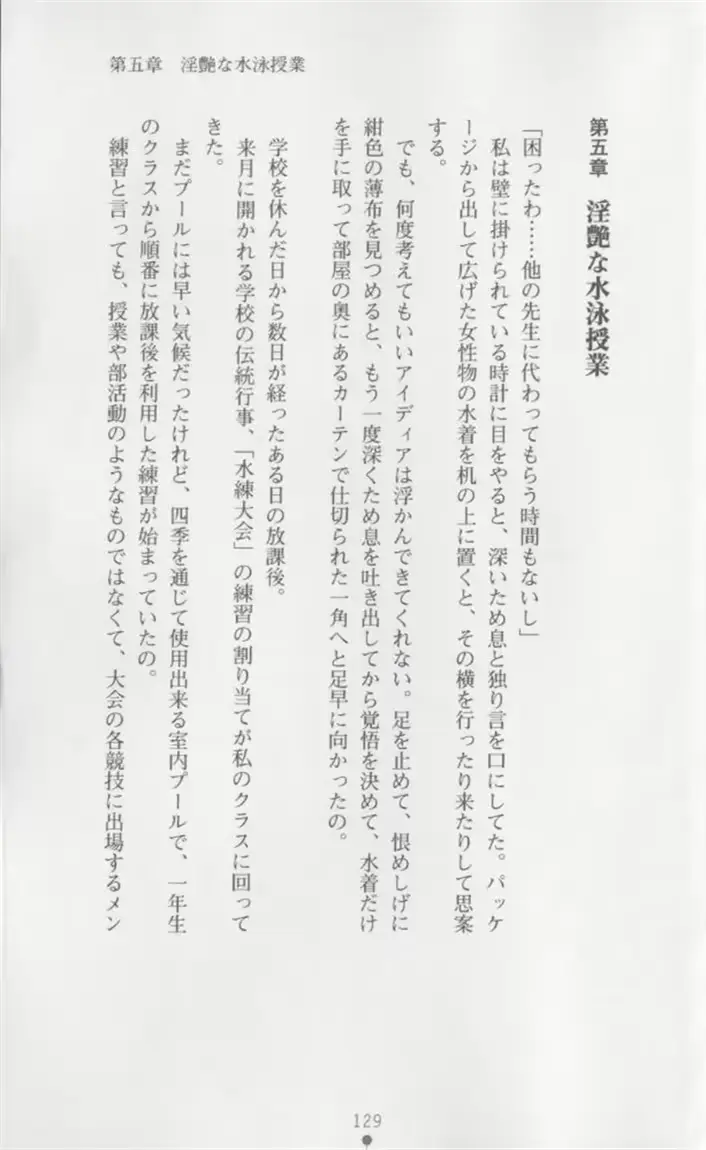 第五章　淫艶な水泳授業
第五章　淫艶な水泳授業
「困ったわ……他の先生に代わってもらう時間もないし」
　私は壁に掛けられている時計に目をやると、深いため息と独り言を口にしてた。パッケ
ージから出して広げた女性物の水着を机の上に置くと、その横を行ったり来たりして思案
する。
　でも、何度考えてもいいアイディアは浮かんできてくれない。足を止めて、恨めしげに
紺色の薄布を見つめると、もう一度深くため息を吐き出してから覚悟を決めて、水着だけ
を手に取って部屋の奥にあるカーテンで仕切られた一角へと足早に向かったの。
　学校を休んだ日から数日が経ったある日の放課後。
　来月に開かれる学校の伝統行事、「水練大会」の練習の割り当てが私のクラスに回って
きた。
　まだプールには早い気候だったけれど、四季を通じて使用出来る室内プールで、一年生
のクラスから順番に放課後を利用した練習が始まっていたの。
　練習と言っても、授業や部活動のようなものではなくて、大会の各競技に出場するメン
129